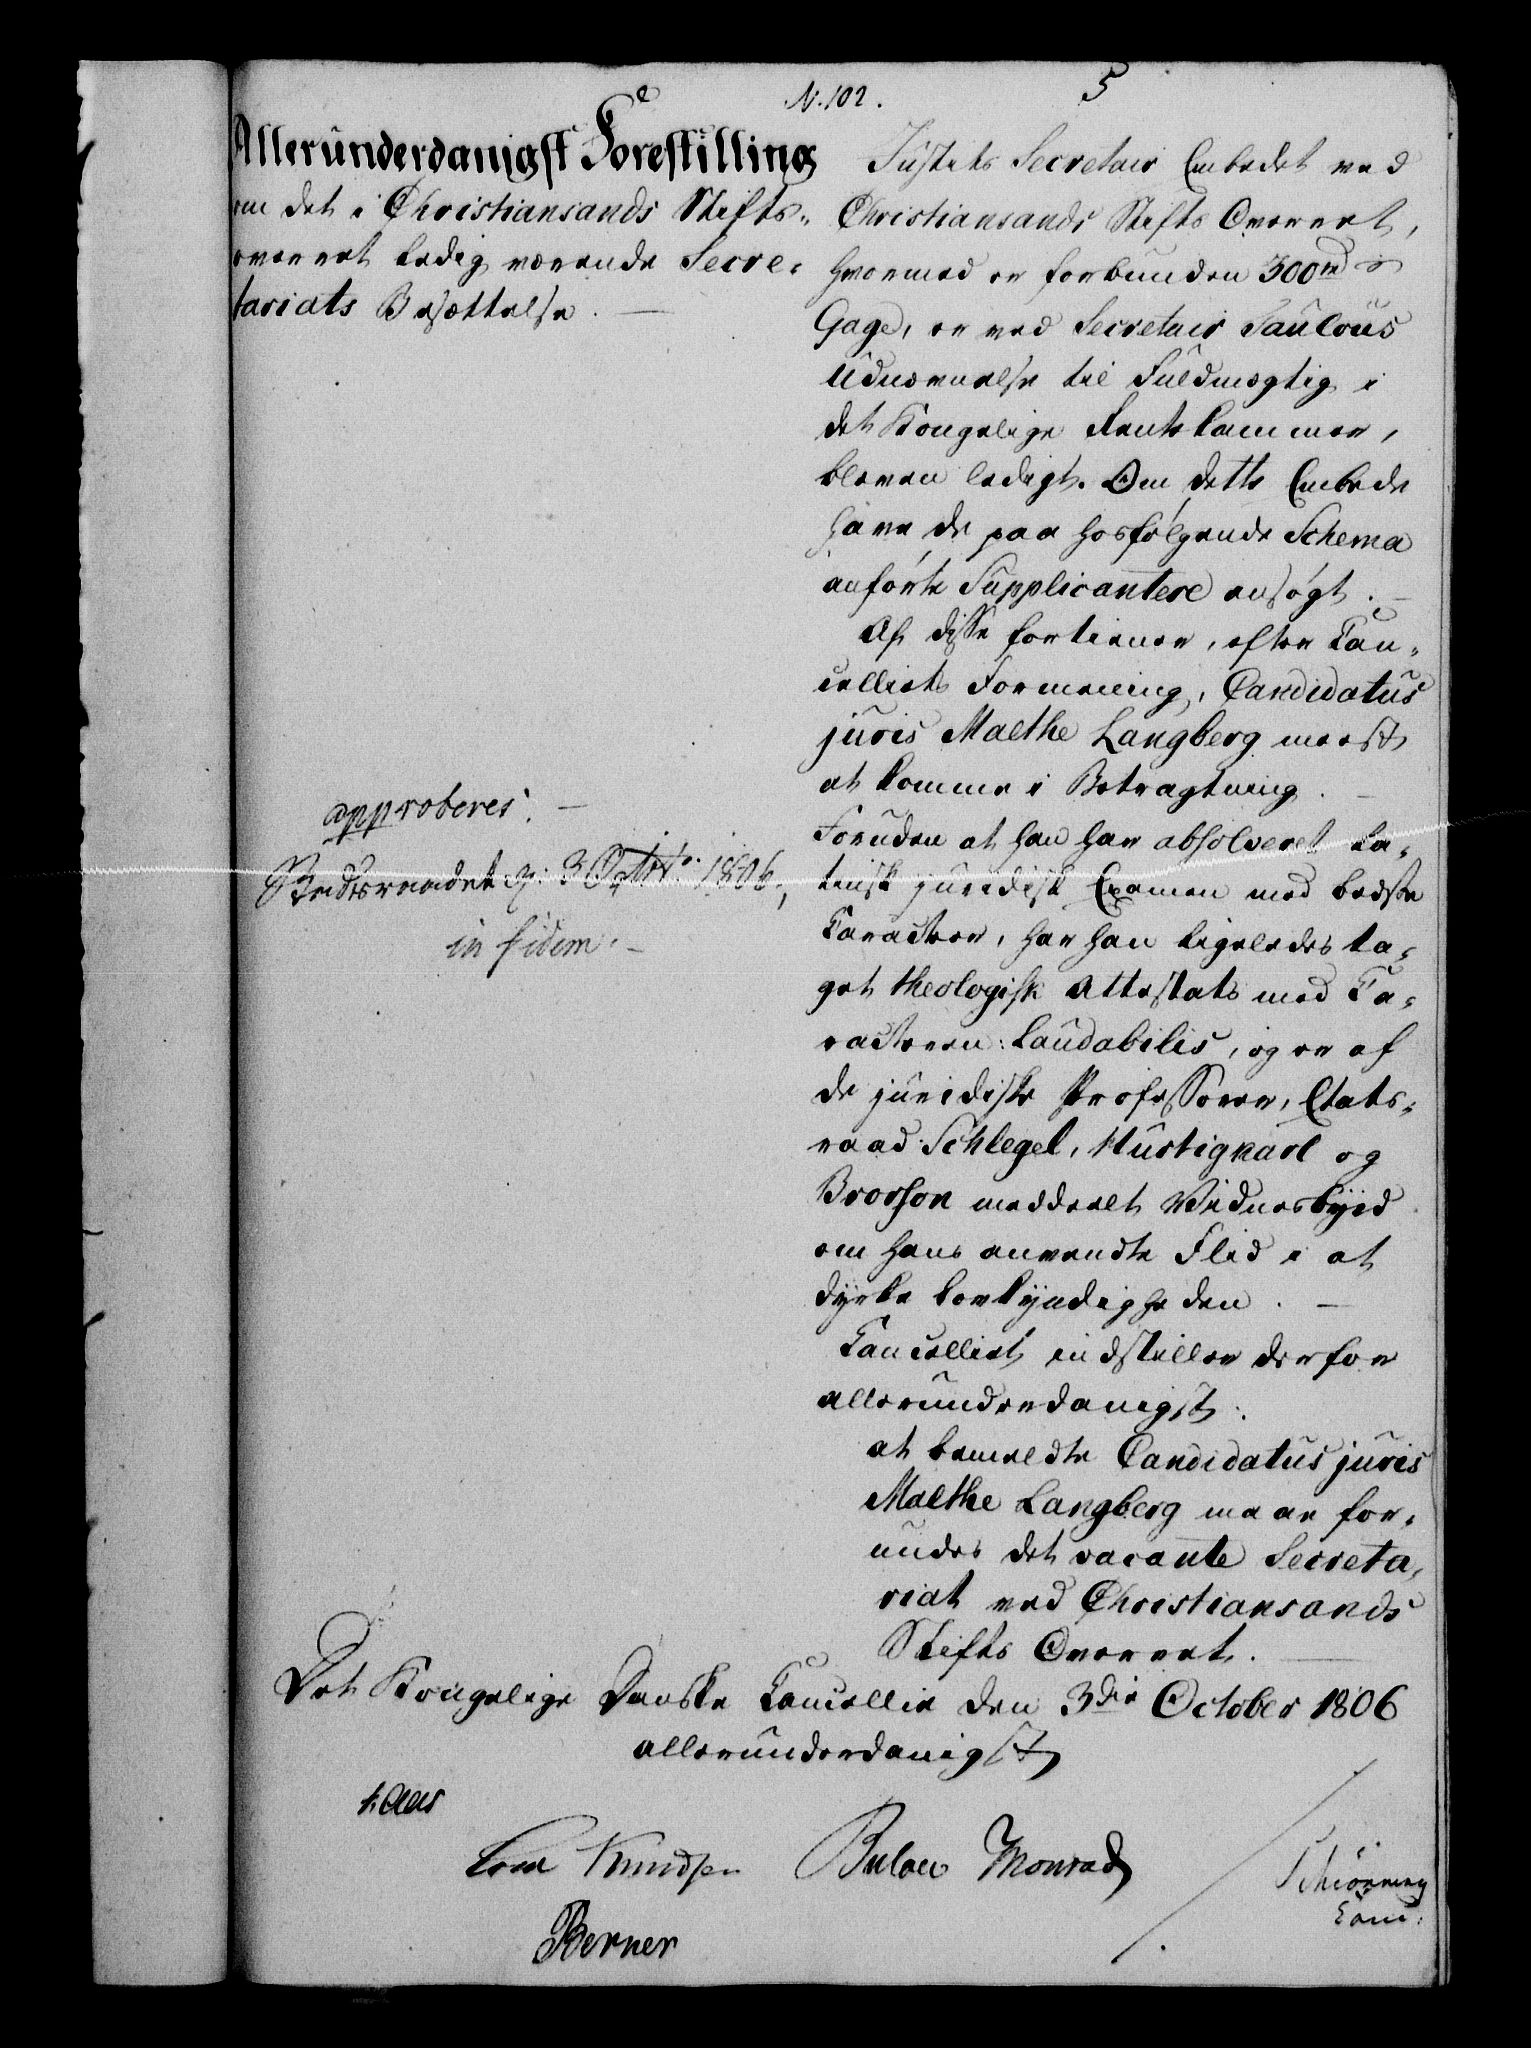 N. 102.
5
Allerunderdanigst Forestilling
om det i Christiansands Stifts-
overret ledig værende Secre-
tariats Besættelse. —
approberes. —
3 Octbr. 1806,
in fidem. —
Justits Secretair Embedet ved
Christiansands Stifts Overret,
hvormed er forbunden 300 rd i
Gage, er ved Secretair Saulous
Udnævnelse til Fuldmægtig i
det Kongelige Rentekammer,
bleven ledigt. Om dette Embede
have de paa hosfølgende Schema
anførte Supplicantere ansøgt. —
Af disse fortiener, efter Can-
celliets Formening, Candidatus
juris Malthe Langberg meest
at komme i Betragtning. —
Foruden at han har absolveret La-
tinsk juridisk Examen med bedste
Caracteer, har han ligeledes ta-
get theologisk Attestats med Ca-
racteren: Laudabilis, og er af
de juridiske Professorer, Etats-
raad Schlegel, Hurtigkarl og
Brorson meddeelt Vidnesbyrd
om hans anvendte Flid i at
dyrke Lovkyndigheden. —
Cancelliet indstiller derfor
allerunderdanigst:
at bemeldte Candidatus juris
Malthe Langberg maae for-
undes det vacante Secreta-
riat ved Christiansands
Stifts Overret. —
Det Kongelige Danske Cancellie den 3die October 1806
allerunderdanigst
Kaas
Knudsen Bülow Monrad
Berner
Schiønning